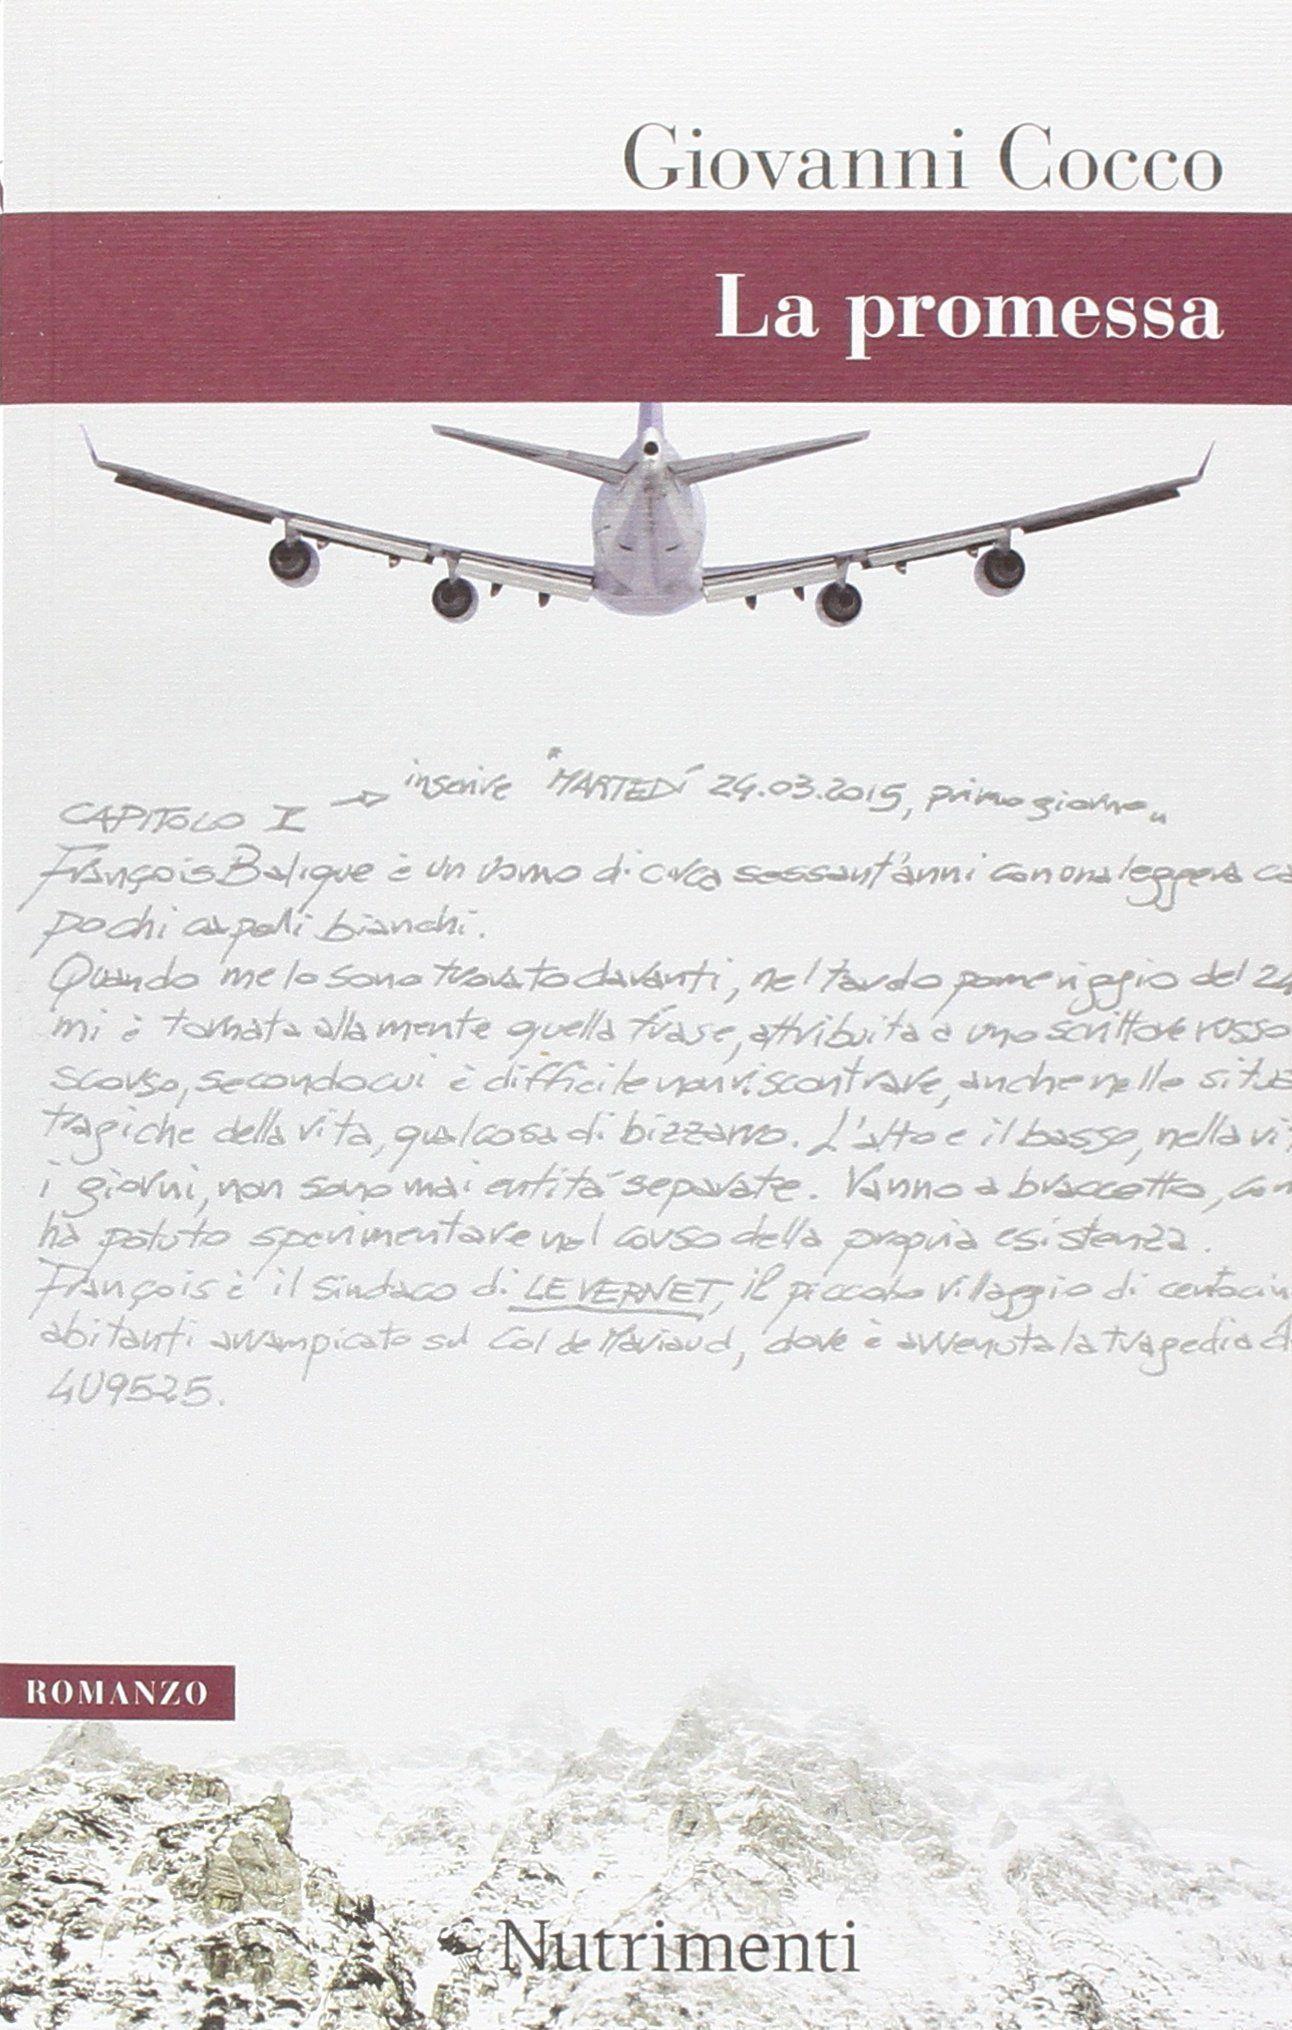 Giovanni Cocco
La promessa
inserire "MARTEDÍ 24.03.2015, primo giorno"
CAPITOLO I →
François Balique è un uomo di circa sessant'anni con una leggera
pochi capelli bianchi.
Quando me lo sono trovato davanti, nel tardo pomeriggio del 24
mi è tornata alla mente quella frase, attribuita a uno scrittore russo
scorso, secondo cui è difficile non riscontrare, anche nelle
tragiche della vita, qualcosa di bizzarro. L'alto e il basso, nella
i giorni, non sono mai entità separate. Vanno a braccetto,
ha potuto sperimentare nel corso della propria esistenza.
François è il sindaco di LE VERNET, il piccolo villaggio di
abitanti avvampicato sul Col de Mariaud, dove è avvenuta la tragedia
4U9525.
ROMANZO
Nutrimenti